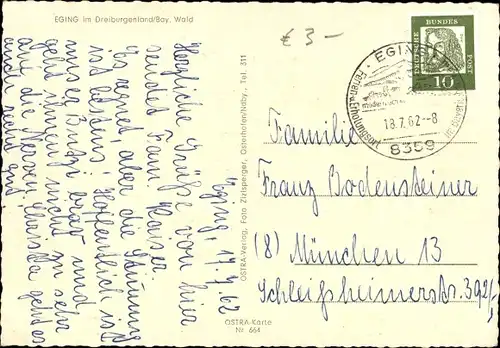 EGING im Dreiburgenland/Bay. Wald
€ 3-
DEUTSCHE BUNDESPOST
10
EGING
Ferien-Erholungsort
18.7.62--8
8359
Eging, 17.7.62
Herzliche Grüße von hier
sendet Fam. Kaiser
Es regnet, aber die Stimmung
ist bestens. Hoffentlich ist
unser Burzi brav und
geht Ihnen nicht zu sehr
auf die Nerven.
und recht gut.
OSTRA-Verlag, Foto Zizlsperger, Osterhofen/Ndby., Tel. 311
OSTRA-Karte
Nr. 664
Familie
Franz Bodensteiner
(8) München 13
Schleißheimerstr. 392/